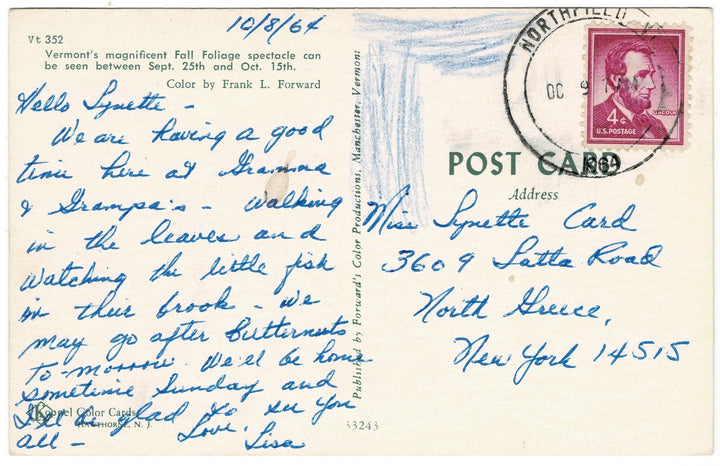 10/8/64
Vt 352
Vermont's magnificent Fall Foliage spectacle can
be seen between Sept. 25th and Oct. 15th.
Color by Frank L. Forward
Hello Lynette -
We are having a good
time here at Gramma
& Grampa's - Walking
in the leaves and
watching the little fish
in their brook - We
may go after Butternuts
To-morrow. We'll be home
sometime Sunday and
I'll be glad to see you
all - Love, Lisa
Koppel Color Cards
HAWTHORNE, N. J.
33243
Published by Forward's Color Productions, Manchester, Vermont
NORTHFIELD
OC 9
1964
4¢
LINCOLN
U.S. POSTAGE
POST CARD
Address
Miss Lynette Card
3609 Latta Road
North Greece,
New York 14515